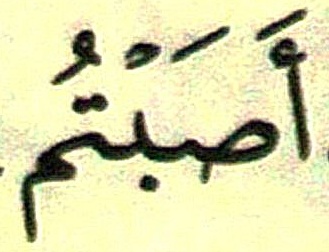 أَصَبْتُم